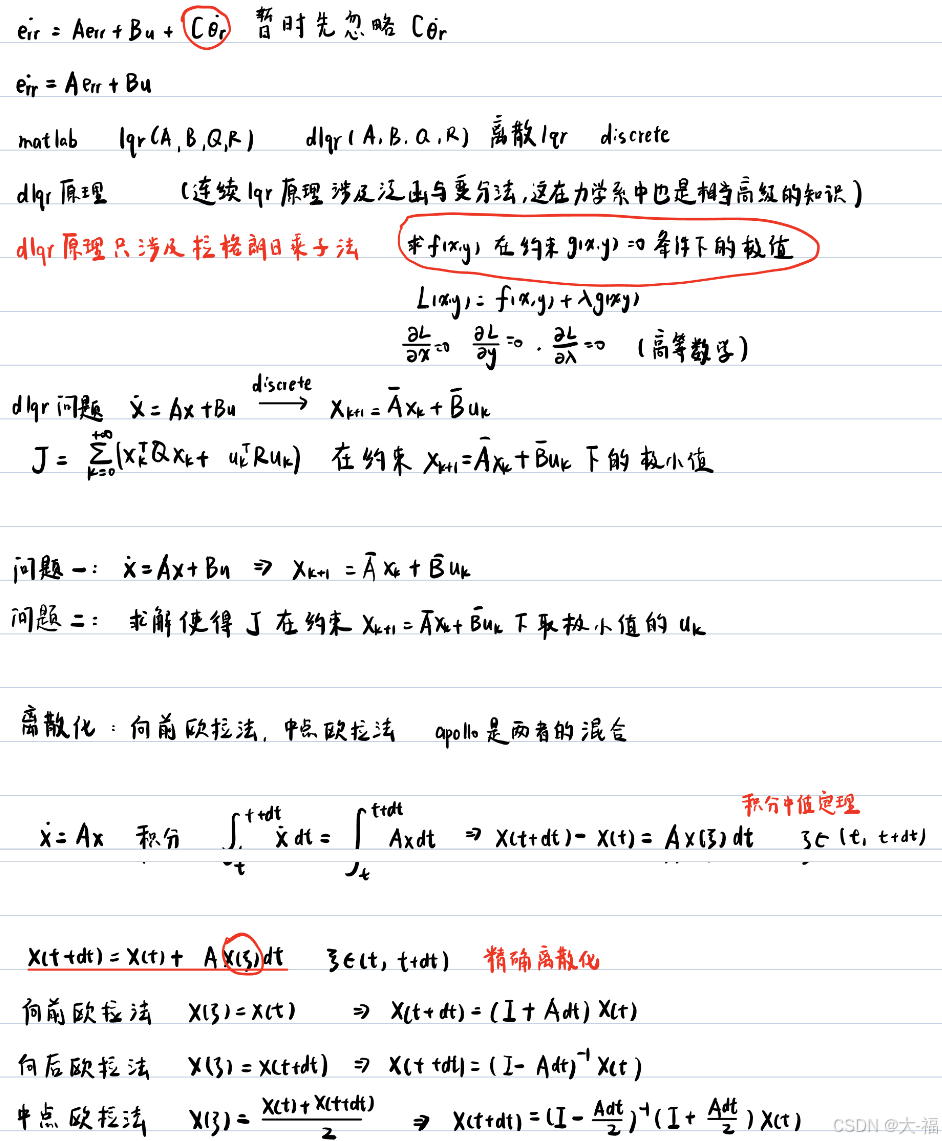 ėrr = Aerr + Bu + Cθ̇r 暂时先忽略 Cθ̇r
ėrr = Aerr + Bu
matlab lqr(A,B,Q,R) dlqr(A,B,Q,R) 离散lqr discrete
dlqr原理 (连续lqr原理涉及泛函与变分法,这在力学系中也是相当高级的知识)
dlqr原理只涉及拉格朗日乘子法 求f(x,y)在约束g(x,y)=0条件下的极值
L(x,y) = f(x,y) + λg(x,y)
∂L/∂x=0 ∂L/∂y=0 . ∂L/∂λ=0 (高等数学)
dlqr问题 ẋ = Ax + Bu ⟶(discrete) Xk+1 = Āxk + B̄uk
J = Σ(k=0→+∞)(xkᵀQxk + ukᵀRuk) 在约束 Xk+1=Āxk+B̄uk 下的极小值
问题一: ẋ=Ax+Bu ⇒ Xk+1 = Āxk + B̄uk
问题二: 求解使得 J 在约束 Xk+1=Āxk+B̄uk 下取极小值的 uk
离散化:向前欧拉法,中点欧拉法 apollo是两者的混合
积分中值定理
ẋ = Ax 积分 ∫ₜ^(t+dt) ẋ dt = ∫ₜ^(t+dt) Ax dt ⇒ X(t+dt) - X(t) = A X(ξ) dt ξ∈(t, t+dt)
X(t+dt) = X(t) + A X(ξ)dt ξ∈(t, t+dt) 精确离散化
向前欧拉法 X(ξ)=X(t) ⇒ X(t+dt) = (I + Adt) X(t)
向后欧拉法 X(ξ) = X(t+dt) ⇒ X(t+dt) = (I - Adt)⁻¹ X(t)
中点欧拉法 X(ξ) = (X(t)+X(t+dt))/2 ⇒ X(t+dt) = (I - Adt/2)⁻¹(I + Adt/2) X(t)
CSDN @大-福